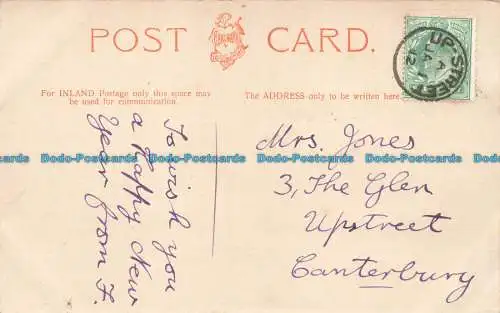 POST CARD.
For INLAND Postage only this space may
be used for communication.
The ADDRESS only to be written here.
UPSTREET
A
JA 1
12
To wish you
a Happy New
Year from F.
Mrs. Jones
3, The Glen
Upstreet
Canterbury
Dodo-Postcards Dodo-Postcards Dodo-Postcards Dodo-Postcards